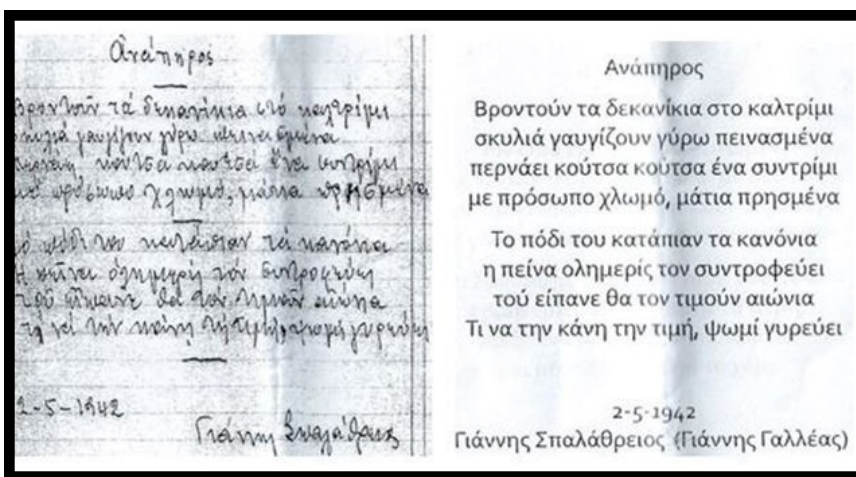 Ἀνάπηρος
Βροντοῦν τά δεκανίκια στό καλτρίμι
σκυλιά γαυγίζουν γύρω πεινασμένα
περνάει κούτσα κούτσα ἕνα συντρίμι
μέ πρόσωπο χλωμό, μάτια πρησμένα
Τό πόδι του κατάπιαν τά κανόνια
ἡ πεῖνα ὁλημερίς τόν συντροφεύει
τοῦ εἴπανε θά τόν τιμοῦν αἰώνια
τί νά τήν κάνη τή τιμή, ψωμί γυρεύει
2-5-1942
Γιάννης Σπαλάθρειος
Ανάπηρος
Βροντούν τα δεκανίκια στο καλτρίμι
σκυλιά γαυγίζουν γύρω πεινασμένα
περνάει κούτσα κούτσα ένα συντρίμι
με πρόσωπο χλωμό, μάτια πρησμένα
Το πόδι του κατάπιαν τα κανόνια
η πείνα ολημερίς τον συντροφεύει
τού είπανε θα τον τιμούν αιώνια
Τι να την κάνη την τιμή, ψωμί γυρεύει
2-5-1942
Γιάννης Σπαλάθρειος (Γιάννης Γαλλέας)